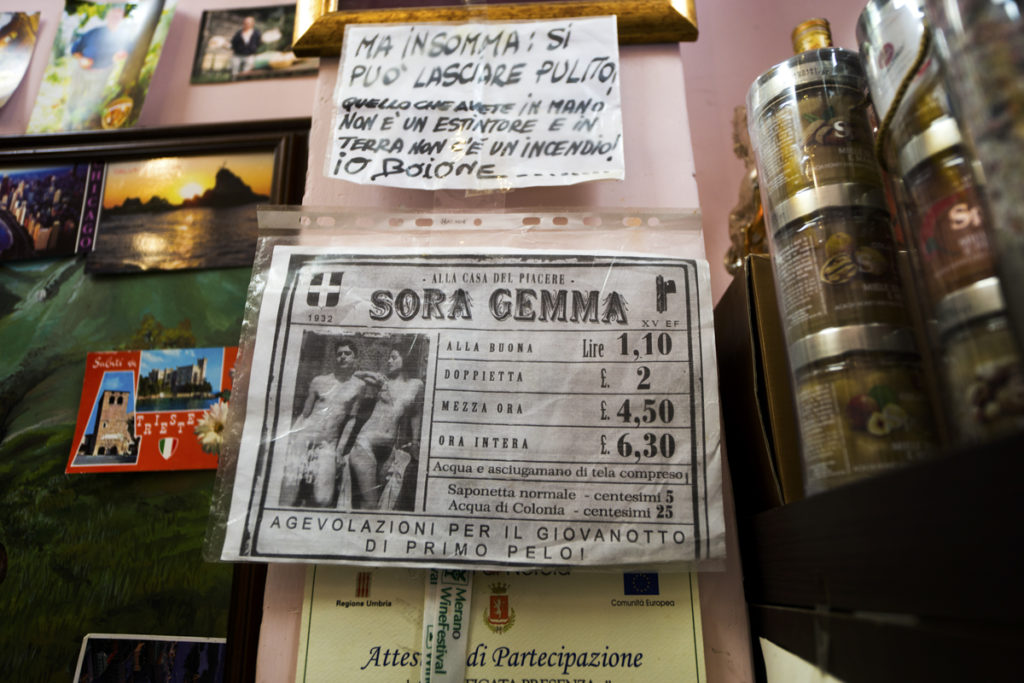 MA INSOMMA: SI
PUO' LASCIARE PULITO!
QUELLO CHE AVETE IN MANO
NON È UN ESTINTORE E IN
TERRA NON C'È UN INCENDIO!
IO BOIONE
CHICAGO
Saluti da
TRIESTE
- ALLA CASA DEL PIACERE -
SORA GEMMA
1932
XV EF
ALLA BUONA Lire 1,10
DOPPIETTA £. 2
MEZZA ORA £. 4,50
ORA INTERA £. 6,30
Acqua e asciugamano di tela compreso
Saponetta normale - centesimi 5
Acqua di Colonia - centesimi 25
AGEVOLAZIONI PER IL GIOVANOTTO
DI PRIMO PELO!
Regione Umbria
Comunità Europea
Merano
WineFestival
di Partecipazione